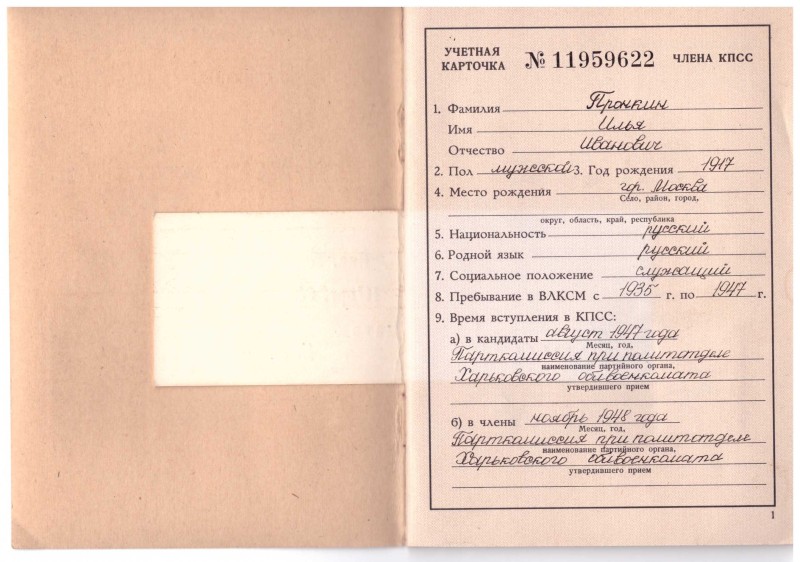 УЧЕТНАЯ КАРТОЧКА № 11959622 ЧЛЕНА КПСС
1. Фамилия Пронкин
Имя Илья
Отчество Иванович
2. Пол мужской 3. Год рождения 1917
4. Место рождения гор. Москва
Село, район, город,
округ, область, край, республика
5. Национальность русский
6. Родной язык русский
7. Социальное положение служащий
8. Пребывание в ВЛКСМ с 1935 г. по 1947 г.
9. Время вступления в КПСС:
а) в кандидаты август 1947 года
Месяц, год,
Парткомиссия при политотделе
наименование партийного органа,
Харьковского облвоенкомата
утвердившего прием
б) в члены ноябрь 1948 года
Месяц, год,
Парткомиссия при политотделе
наименование партийного органа,
Харьковского облвоенкомата
утвердившего прием
1